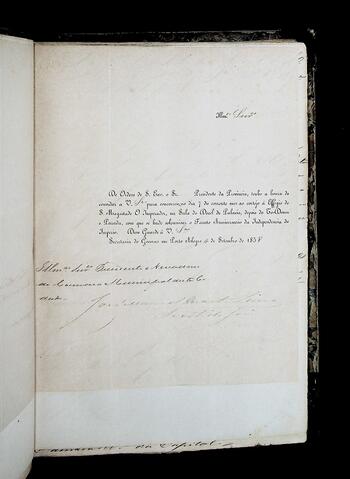 Illmo. Senr.
De Ordem de S. Exc. o Sr. Presidente da Provincia, tenho a honra de
convidar a V. Sa para concorrer no dia 7 do corrente mez ao cortejo á Effigie de
S. Magestade O Imperador, na Sala do Docel de Palacio, depois do Te-Deum
e Parada, com que se hade solemnisar o Fausto Anniversario da Independencia do
Imperio. Deos Guarde à V. Sa
Secretaria do Governo em Porto Alegre 4 de Setembro de 1858
Illmos. Snrs. Presidente e Vereadores
da Camara Municipal desta Ci
dade.
da Capital